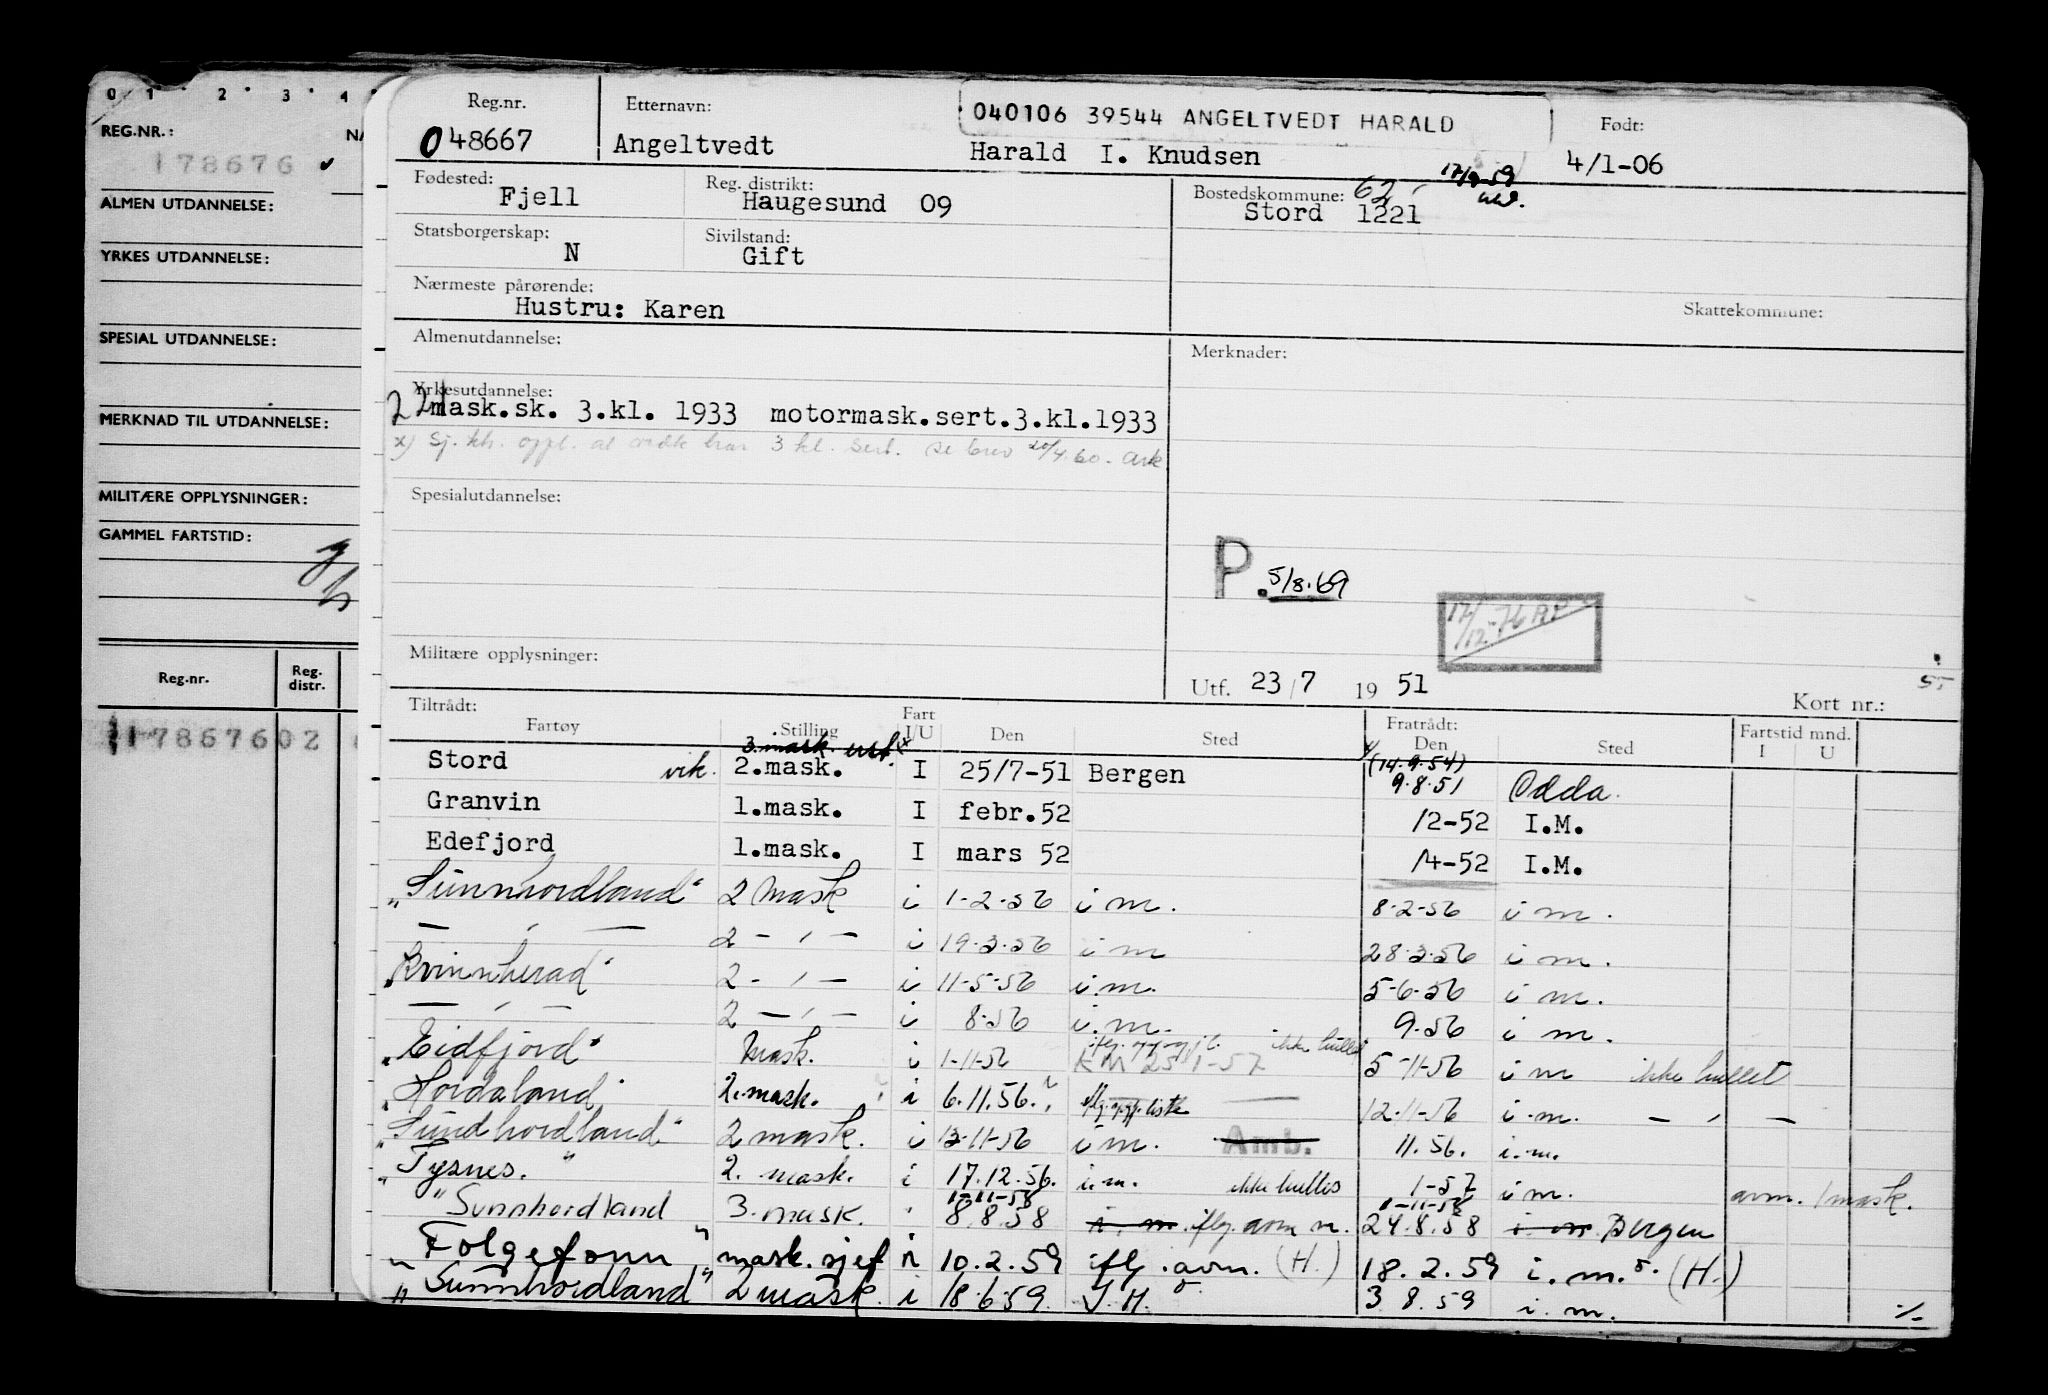 0 1 2 3 4
REG.NR.: NA
178676
ALMEN UTDANNELSE:
YRKES UTDANNELSE:
SPESIAL UTDANNELSE:
MERKNAD TIL UTDANNELSE:
MILITÆRE OPPLYSNINGER:
GAMMEL FARTSTID:
Reg.nr. Reg. distr.
17867602
Reg.nr. Etternavn: 040106 39544 ANGELTVEDT HARALD Født:
048667 Angeltvedt Harald I. Knudsen 4/1-06
Fødested: Reg. distrikt: Bostedskommune: 62
Fjell Haugesund 09 Stord 1221
Statsborgerskap: Sivilstand:
N Gift
Nærmeste pårørende:
Hustru: Karen Skattekommune:
Almenutdannelse: Merknader:
Yrkesutdannelse:
mask.sk. 3.kl. 1933 motormask.sert.3.kl.1933
x) Sj. kh. oppl. at vedk har 3 kl. sert. se brev 20/4.60.
Spesialutdannelse:
P. 5/8.69
Militære opplysninger:
Utf. 23/7 1951 Kort nr.:
Tiltrådt: Fart Fratrådt: Fartstid mnd.
Fartøy Stilling I/U Den Sted Den Sted I U
3.mask (14.9.54)
Stord vik. 2.mask. I 25/7-51 Bergen 9.8.51 Odda.
Granvin 1.mask. I febr.52 /2-52 I.M.
Edefjord 1.mask. I mars 52 /4-52 I.M.
"Sunnhordland" 2 mask i 1-2-56 i m. 8-2-56 i m.
— " — 2 - " - i 19.3.56 i m 28.3.56 i m.
"Kvinnherad" 2 - " - i 11-5-56 i.m. 5-6-56 i m.
— " — 2 - " - i 8-56 i.m. 9.56 i m.
"Eidfjord" Mask. i 1-11-56 KM 25 1-57 5-11-56 i m ikke hullet
"Hordaland" 2.mask. i 6.11.56. iflg. opp.liste 12-11-56 i.m. — " —
"Sundhordland" 2 mask. i 13-11-56 i m. Amb. 11.56. i.m.
"Tysnes." 2. mask. i 17.12.56. i.m. 1-57 i m. avm. 1 mask.
1-11-58 1-11-58
"Sunnhordland 3.mask. 8.8.58 i m. iflg. avm n. 24.8.58 i m Bergen
"Folgefonn" mask.sjef i 10.2.59 iflg. avm. (H.) 18.2.59 i.m. (H.)
"Sunnhordland" 2 mask. i 18.6.59. J.H. 3 8.59 i.m.